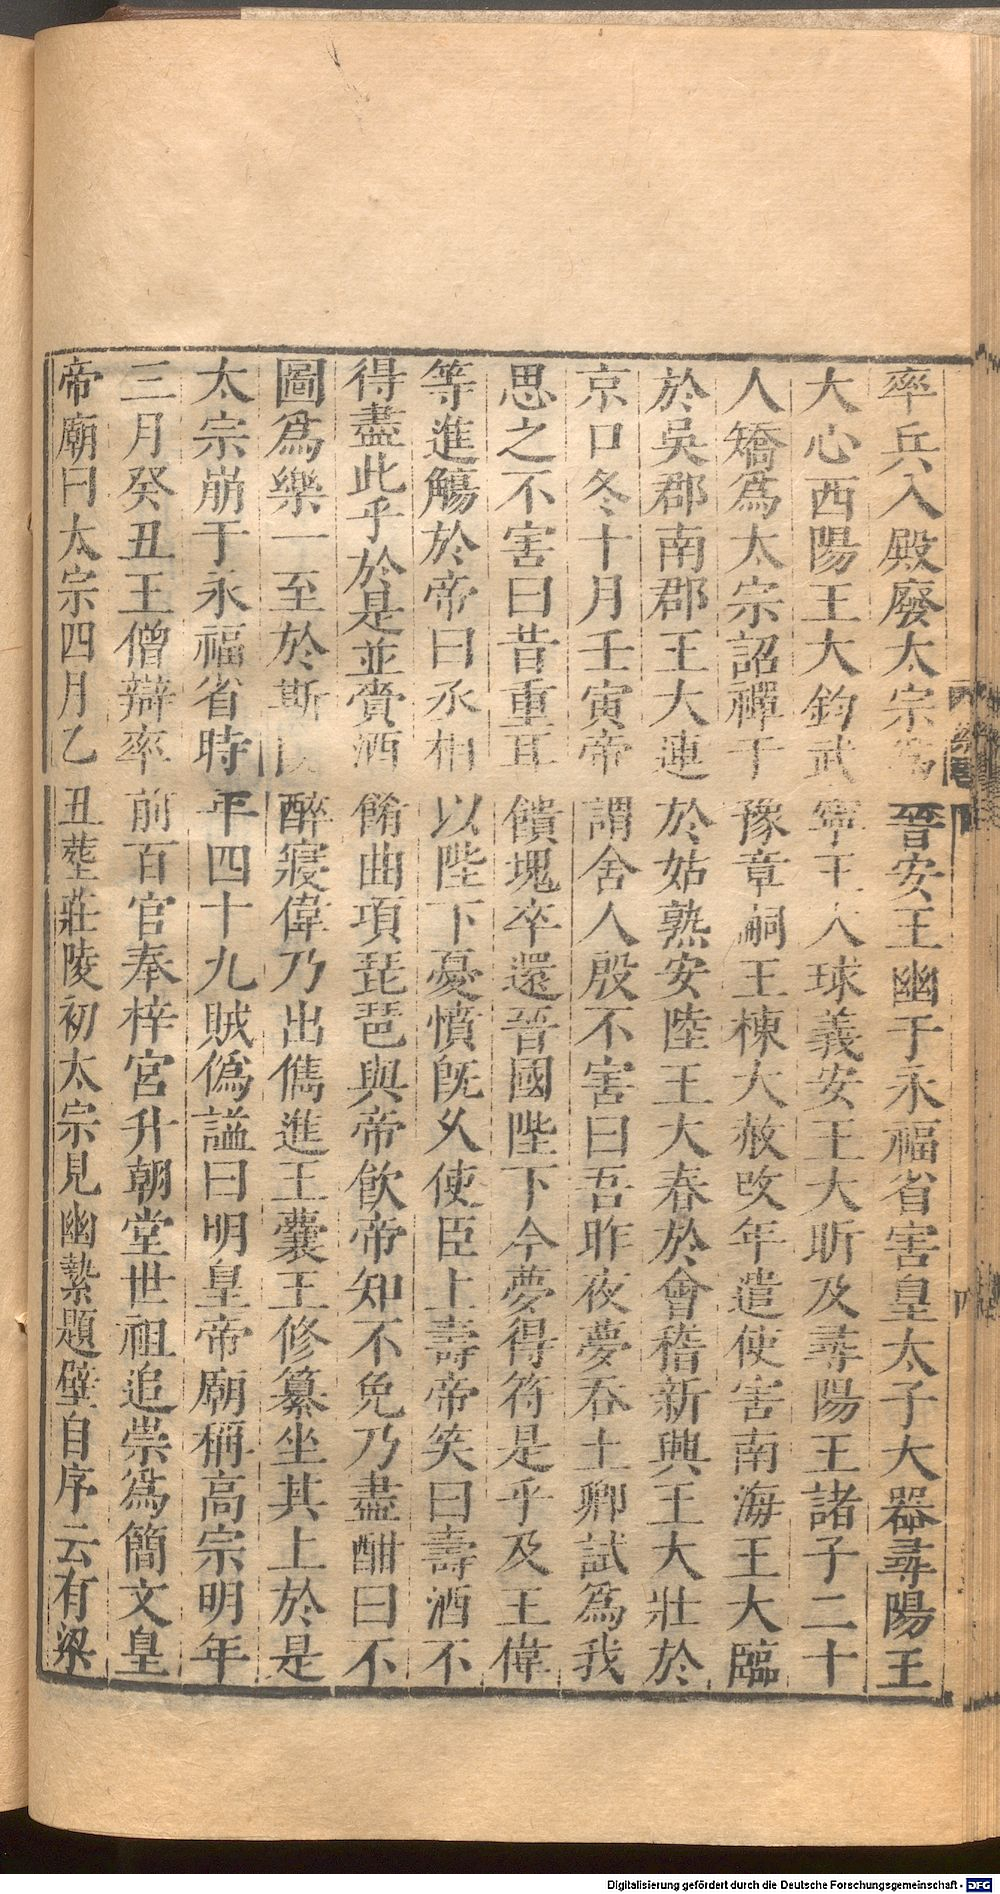 率兵入殿廢太宗爲晉安王幽于永福省害皇太子大器尋陽王
大心西陽王大鈞武寧王大球義安王大昕及尋陽王諸子二十
人矯爲太宗詔禪于豫章嗣王棟大赦改年遣使害南海王大臨
於吳郡南郡王大連於姑熟安陸王大春於會稽新興王大壯於
京口冬十月壬寅帝謂舍人殷不害曰吾昨夜夢吞土卿試爲我
思之不害曰昔重耳饋塊卒還晉國陛下今夢得符是乎及王偉
等進觴於帝曰丞相以陛下憂憤旣久使臣上壽帝笑曰壽酒不
得盡此乎於是並賫酒餚曲項琵琶與帝飲帝知不免乃盡酣曰不
圖爲樂一至於斯旣醉寢偉乃出儁進土囊王修纂坐其上於是
太宗崩于永福省時年四十九賊僞謚曰明皇帝廟稱高宗明年
三月癸丑王僧辯率前百官奉梓宮升朝堂世祖追崇爲簡文皇
帝廟曰太宗四月乙丑葬莊陵初太宗見幽縶題壁自序云有梁
Digitalisierung gefördert durch die Deutsche Forschungsgemeinschaft - DFG